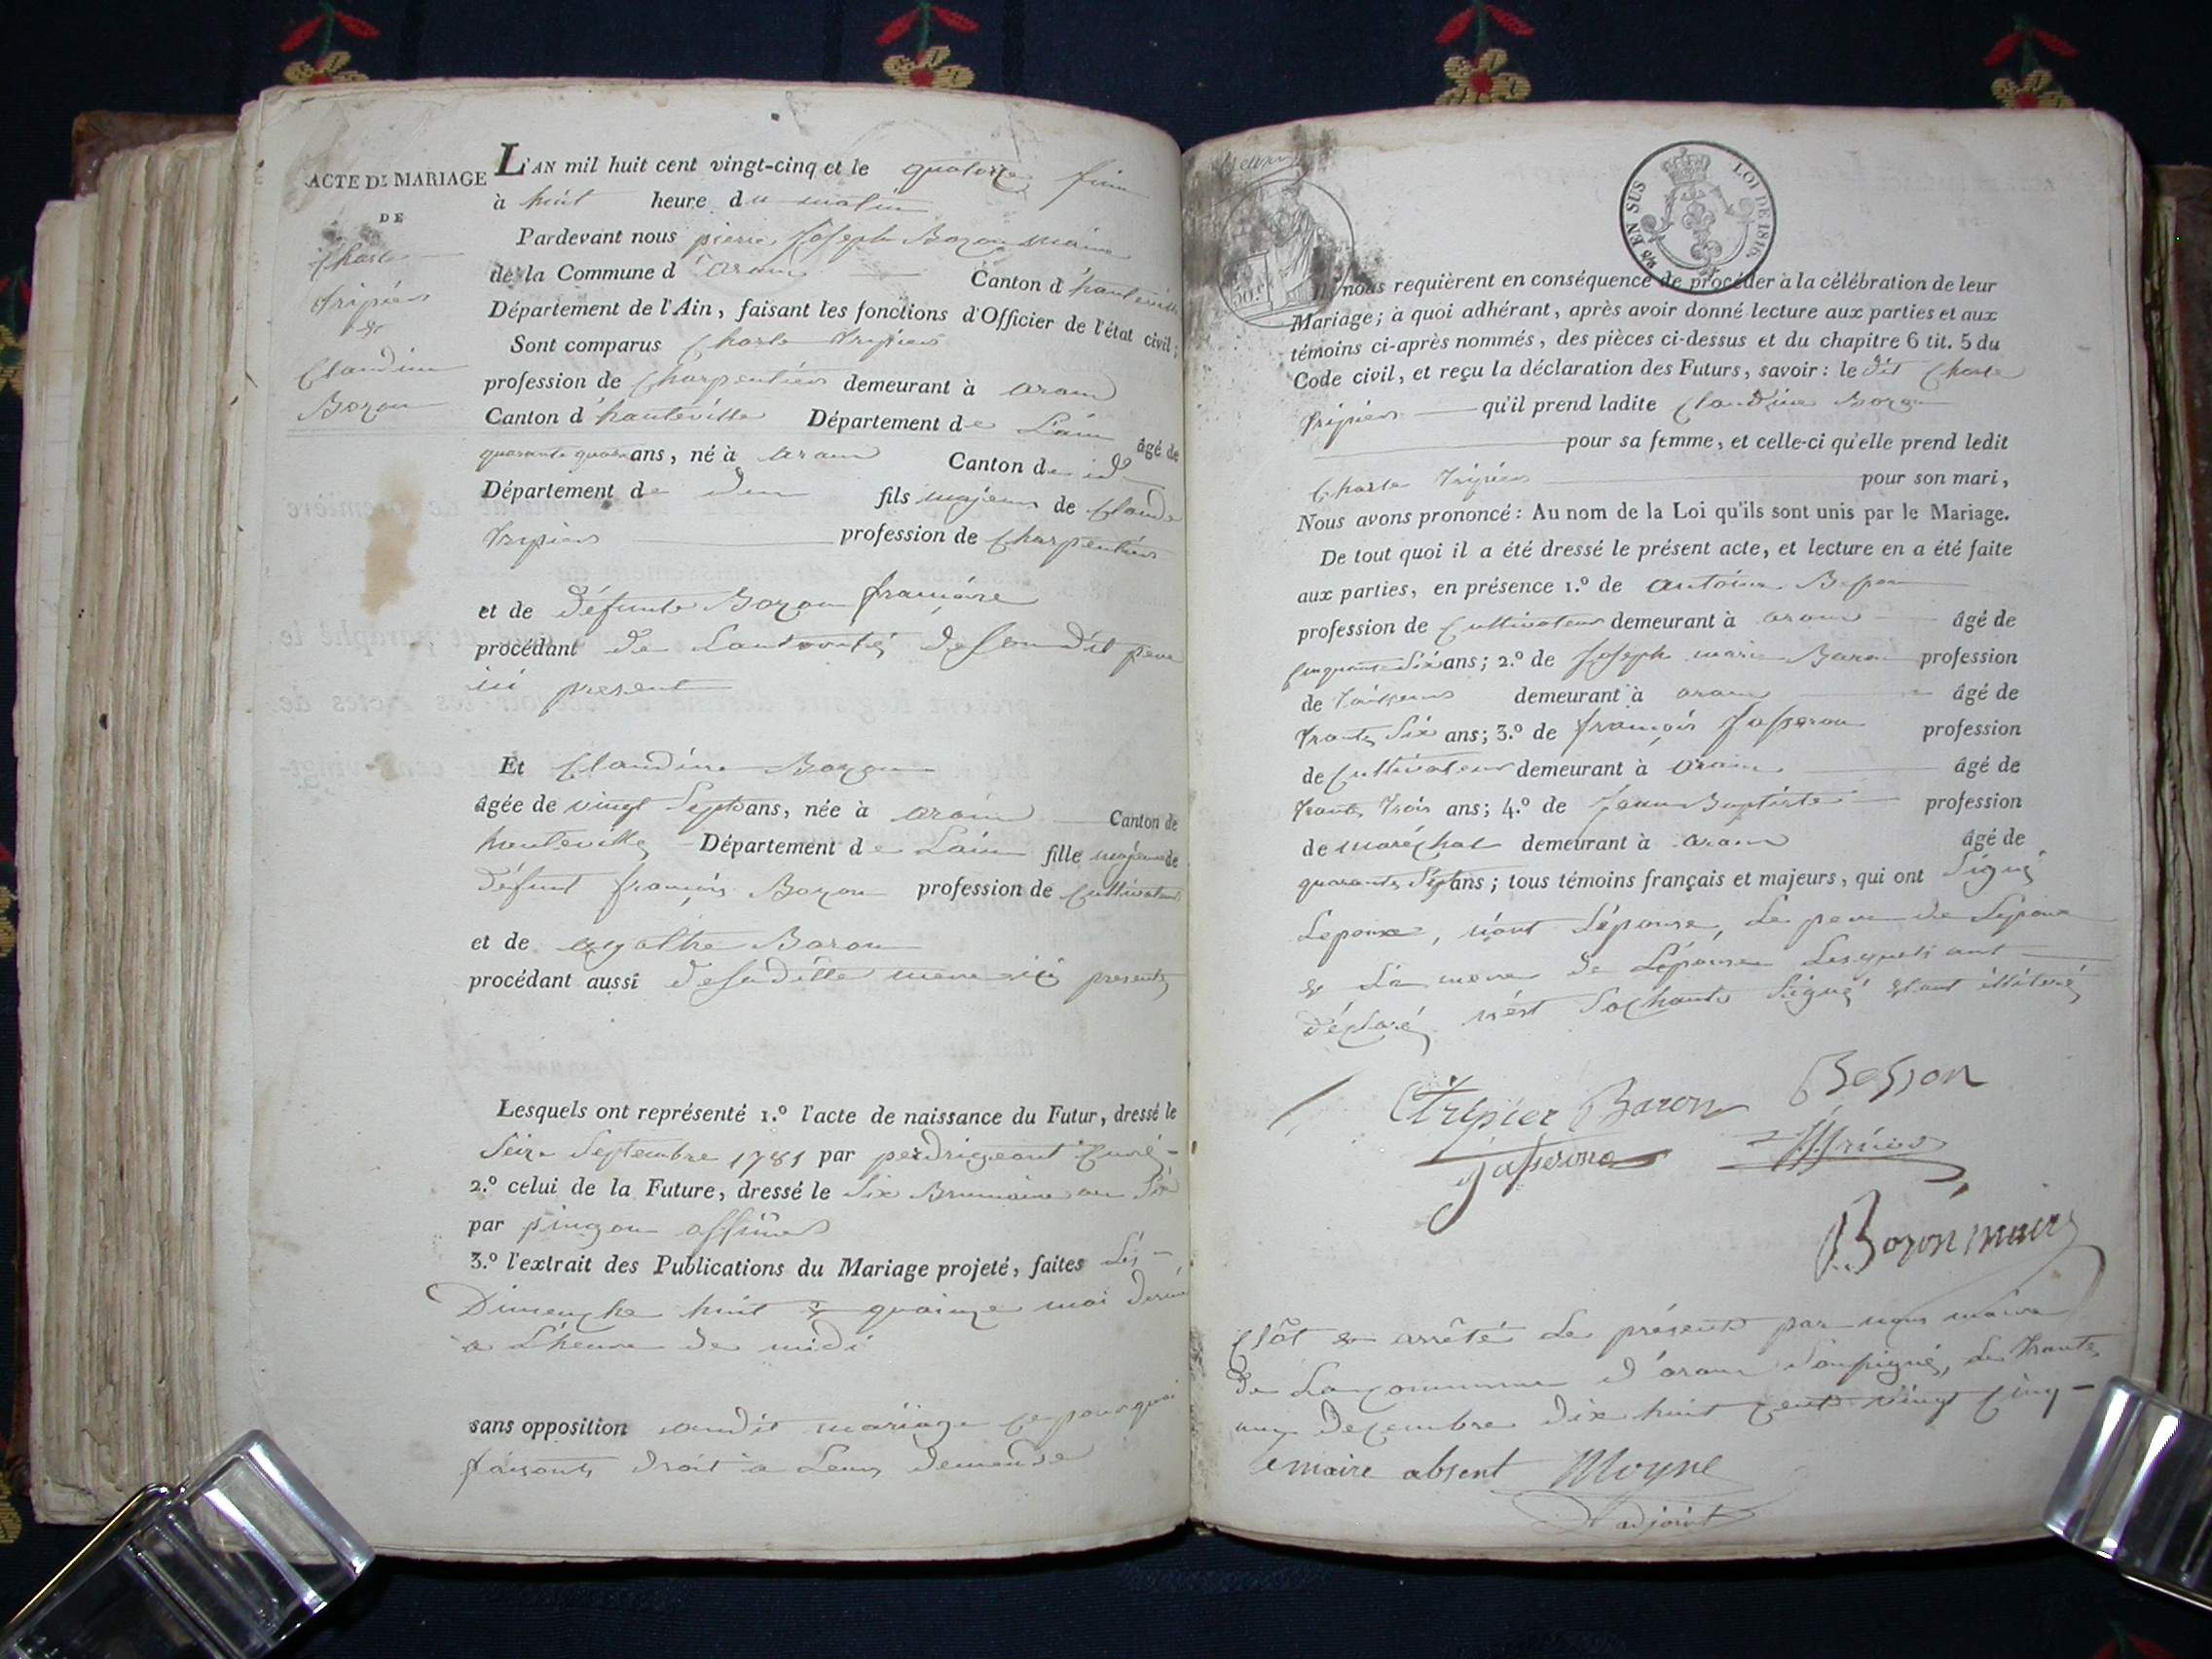 ACTE DE MARIAGE
DE
Charle
Tripier
&
Claudine
Bozon
L'AN mil huit cent vingt-cinq et le quatorze juin
à huit heure du matin
Pardevant nous pierre Joseph Bozon maire
de la Commune d'aran Canton d'hauteville
Département de l'Ain, faisant les fonctions d'Officier de l'état civil;
Sont comparus Charle Tripier
profession de Charpentier demeurant à aran
Canton d'hauteville Département de Lain âgé de
quarante quatre ans, né à aran Canton de id
Département de fils majeur de Claude
Tripier profession de Charpentier
et de défunte Bozon françoise
procédant de Lautorité de Son dit pere
ici present
Et Claudine Bozon
âgée de vingt Sept ans, née à arain Canton de
hauteville Département de Lain fille majeure de
défunt françois Bozon profession de Cultivateur
et de agathe Baron
procédant aussi de sa ditte mere ici presente
Lesquels ont représenté 1.º l'acte de naissance du Futur, dressé le
Seize Septembre 1781 par perdrigeant Curé
2.º celui de la Future, dressé le Six Brumaire an Six
par pinzon officier
3.º l'extrait des Publications du Mariage projeté, faites Les
Dimenche huit & quainze mai dernié
a L'heure de midi
sans opposition audit mariage Cepourquoi
faisants droit a Leur demende
5/10 EN SUS LOI DE 1816.
50.c
Ils nous requièrent en conséquence de procéder à la célébration de leur
Mariage; à quoi adhérant, après avoir donné lecture aux parties et aux
témoins ci-après nommés, des pièces ci-dessus et du chapitre 6 tit. 5 du
Code civil, et reçu la déclaration des Futurs, savoir: le dit Charle
Tripier qu'il prend ladite Claudine Bozon
pour sa femme, et celle-ci qu'elle prend ledit
Charle Tripier pour son mari,
Nous avons prononcé: Au nom de la Loi qu'ils sont unis par le Mariage.
De tout quoi il a été dressé le présent acte, et lecture en a été faite
aux parties, en présence 1.º de antoine Besson
profession de Cultivateur demeurant à aran âgé de
Cinquante Six ans; 2.º de Joseph marie Baron profession
de Taisseur demeurant à aran âgé de
Trante Six ans; 3.º de françois Josseron profession
de Cultivateur demeurant à arain âgé de
Trante Trois ans; 4.º de Jean Baptiste profession
de maréchal demeurant à aran âgé de
quarante Sept ans; tous témoins français et majeurs, qui ont Signé
Lepoux, n'ont L'épouse, Le pere de Lépoux
& La mere de Lépouse Lesquels ont
déclaré n'est Sachants Signé étant illiteré
Ctripier Baron Besson
Josserone
Bozon maire
Clôt & arrêté Le présent par nous maire
de La commune d'aran Soussigné, Le Trante
un Decembre dix huit cent vingt Cinq
Lemaire absent Moyne
adjoint